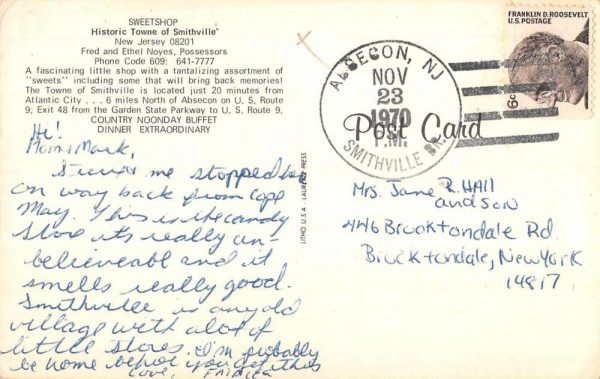 SWEETSHOP
Historic Towne of Smithville
New Jersey 08201
Fred and Ethel Noyes, Possessors
Phone Code 609: 641-7777
A fascinating little shop with a tantalizing assortment of
"sweets" including some that will bring back memories!
The Towne of Smithville is located just 20 minutes from
Atlantic City . . . 6 miles North of Absecon on U. S. Route
9; Exit 48 from the Garden State Parkway to U. S. Route 9.
COUNTRY NOONDAY BUFFET
DINNER EXTRAORDINARY
Hi!
Mom & Mark,
me stopped
on way back from Cape
May. This is the candy
store it's really un-
believeable and it
smells really good.
Smithville is any old
village with alot of
little stores. I'm probably
be home before you get this
Love,
LITHO U.S.A. LAURENCE PRESS
Post Card
ABSECON, NJ
NOV
23
1970
P.M.
SMITHVILLE BR.
FRANKLIN D. ROOSEVELT
U.S. POSTAGE
6c
Mrs. Jane R. HAll
and son
446 Brooktondale Rd.
Brooktondale, New York
14817